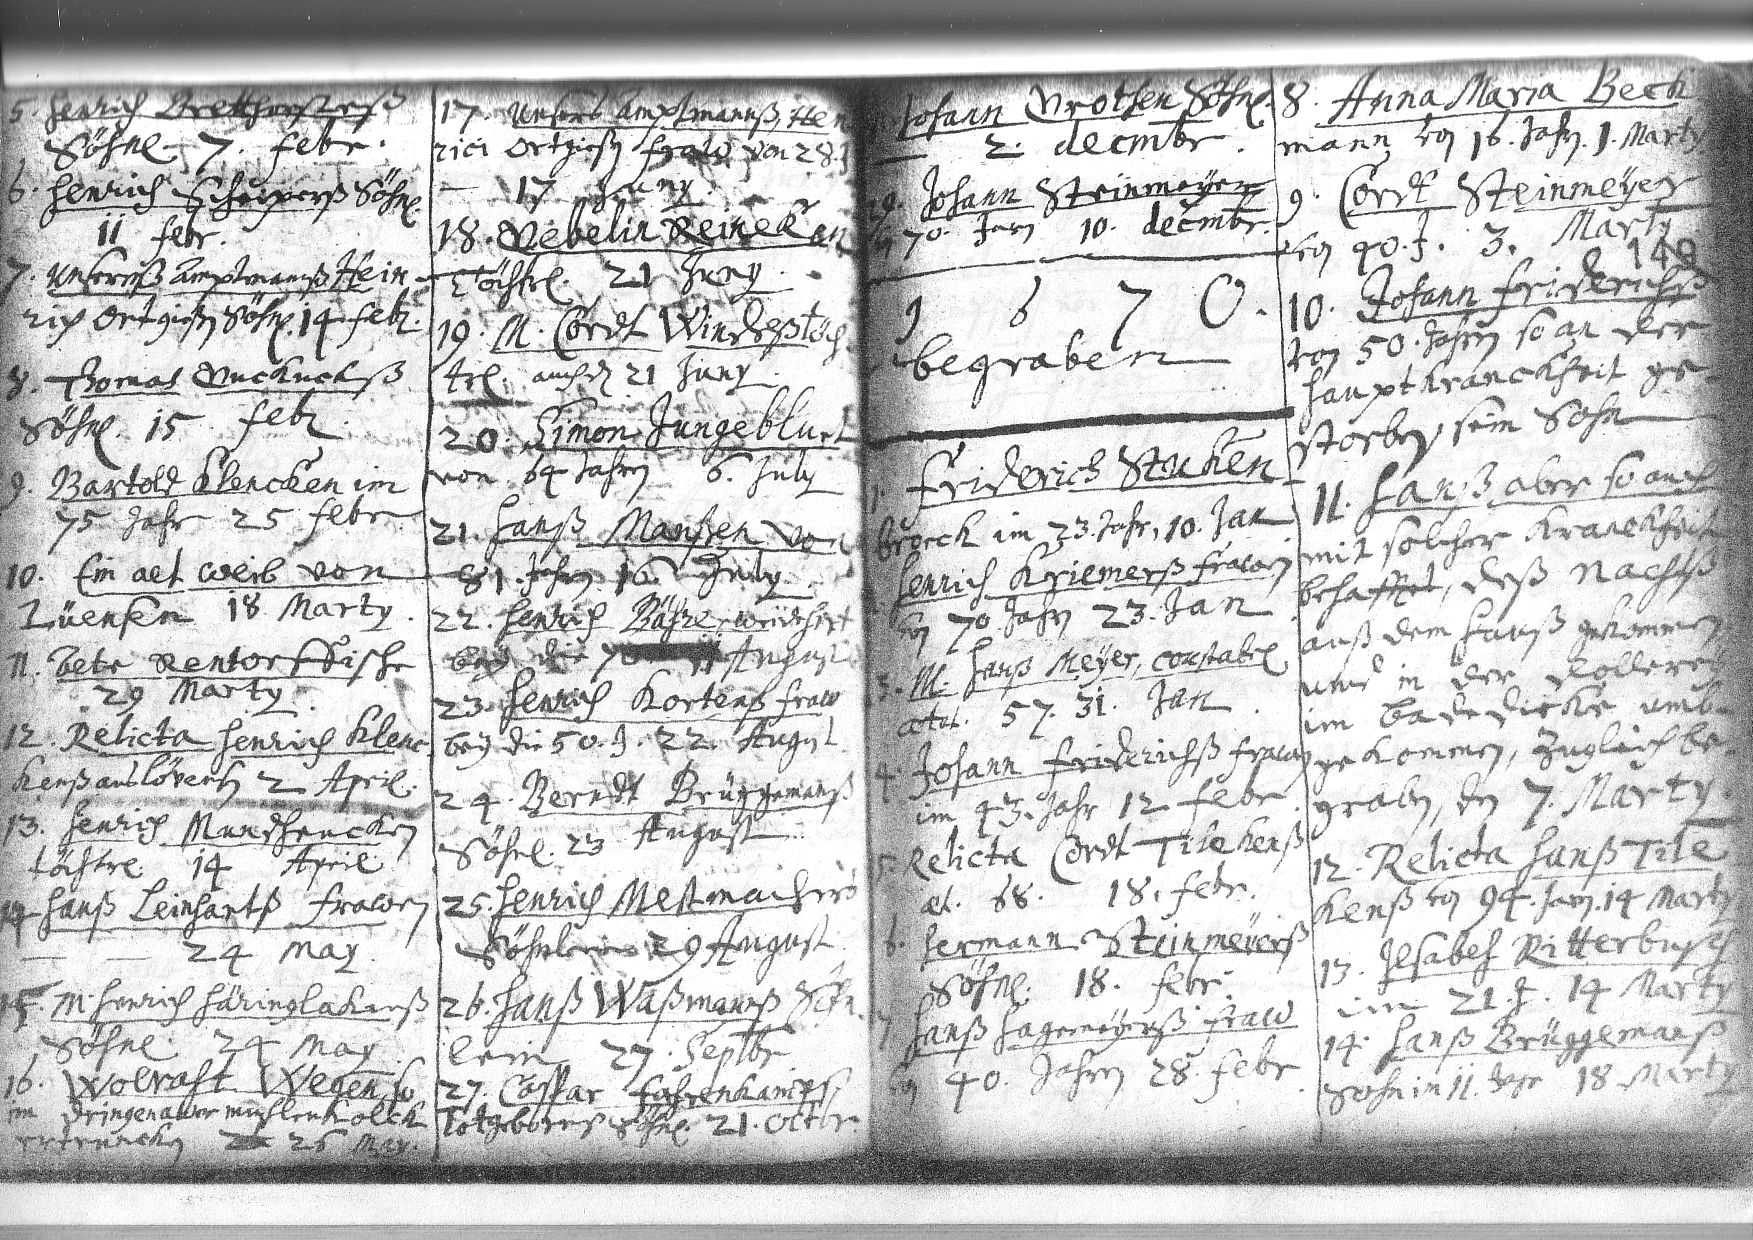 5. Henrich Bretthorsterß
Söhnl. 7. Febr.
6. Henrich Scheiperß Söhnl.
11 Febr.
7. Unsereß Amptmanß Hein-
rich Ortgieß Söhnl. 14 Febr.
8. Thomas Kuckuckß
Söhnl. 15 Febr.
9. Bartold Klencken im
75 Jahr 25 Febr.
10. Ein alt weib von
Lüensen 18 Marty.
11. Bete Rentorffsche
29 Marty.
12. Relicta Henrich Klenc
kenß 2 April.
13. Henrich Mundhencken
töchtrl. 14 April
14 Hanß Leinhartß Frawen
24 May.
15. M. Henrich Häringlakenß
Söhnl. 24 May
16. Wolraht Wegen, so
im dringenawer muhlenkolck
ertruncken 25 May.
17. Unsers Amptmanß Hen
rici Ortgieß Fraw von 28.
17 Juny.
18. Reineken
töchtrl. 21 Juny.
19. M. Cordt Windeß töch
trl. 21 Juny
20. Simon Jungeblut
von 64 Jahren 6. July
21. Hanß Manßen von
81. Jahren 16 July.
22. Henrich
bey die 70 August
23. Henrich Kortenß Fraw
bey die 50. J. 22 August
24. Berndt Brüggemanß
Söhnl. 23 August
25. Henrich Mestmachers
Söhnlein 29 August
26. Hanß Waßmanß Söhn
lein 27. Septbr
27. Caspar Fahrenkamps
Totgebornes Söhnl. 21. Octbr
Johann Söhnl.
2. decmbr.
19. Johann Steinmeyer
von 70. Jaren 10. decmbr.
1670.
begraben
1. Friderich Stuken
broeck im 23. Jahr, 10. Jan
Henrich Kriemerß Frawen
von 70 Jahren 23. Jan
3. M. Hanß Meyer, constabel
aetat. 57. 31. Jan
4. Johann Friderichß Frawen
im 43. Jahr 12 Febr.
5. Relicta Cordt Tilekenß
aet. 68. 18. Febr.
6. Hermann Steinmeyerß
Söhnl. 18. Febr.
7. Hanß Hagemeyerß Fraw
von 40. Jahren 28. Febr.
8. Anna Maria Beck
mann von 16. Jahr. 1. Marty
9. Cordt Steinmeyer
von 40. J. 3. Marty
149
10. Johann Friderichß
von 50. Jahren so an der
hauptkranckheit ge-
storben, sein Sohn
11. Hanß aber so auch
mit solcher kranckheit
behafftet, deß nachtß
auß dem Hauß gekommen
und in der dollerey
im badedicke umb-
gekommen, zugleich be-
graben, den 7. Marty.
12. Relicta Hanß Tile
kenß von 94. Jaren. 14 Marty
13. Ilsabeh Ritterbusch
im 21. J. 14 Marty
14. Hanß Brüggemanß
Sohn im 11. Jahr 18 Marty